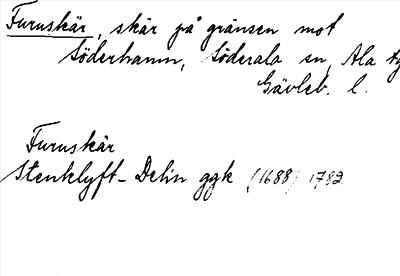 Furuskär, skär på gränsen mot
Söderhamn, Söderala sn, Ala
Gävleb. l.
Furuskär
Stenklyft-Delin ggk (1688) 1782